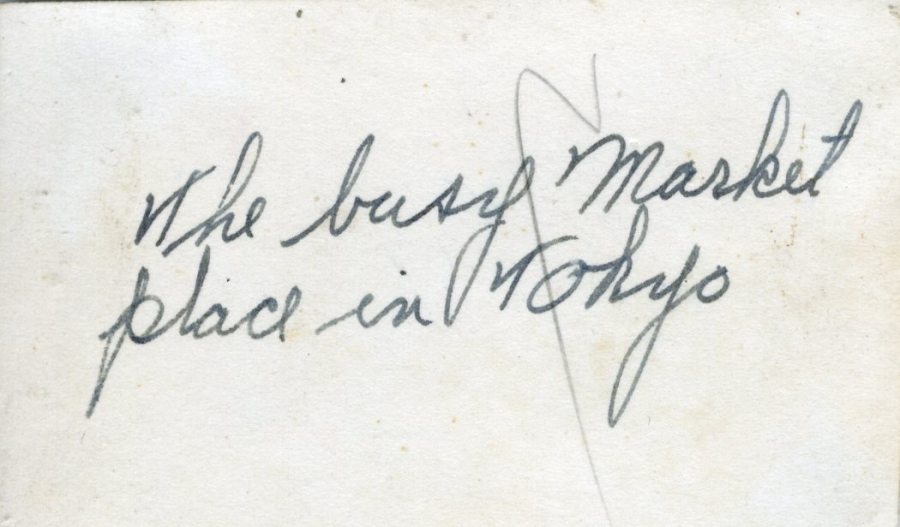 The busy Market
place in Tokyo